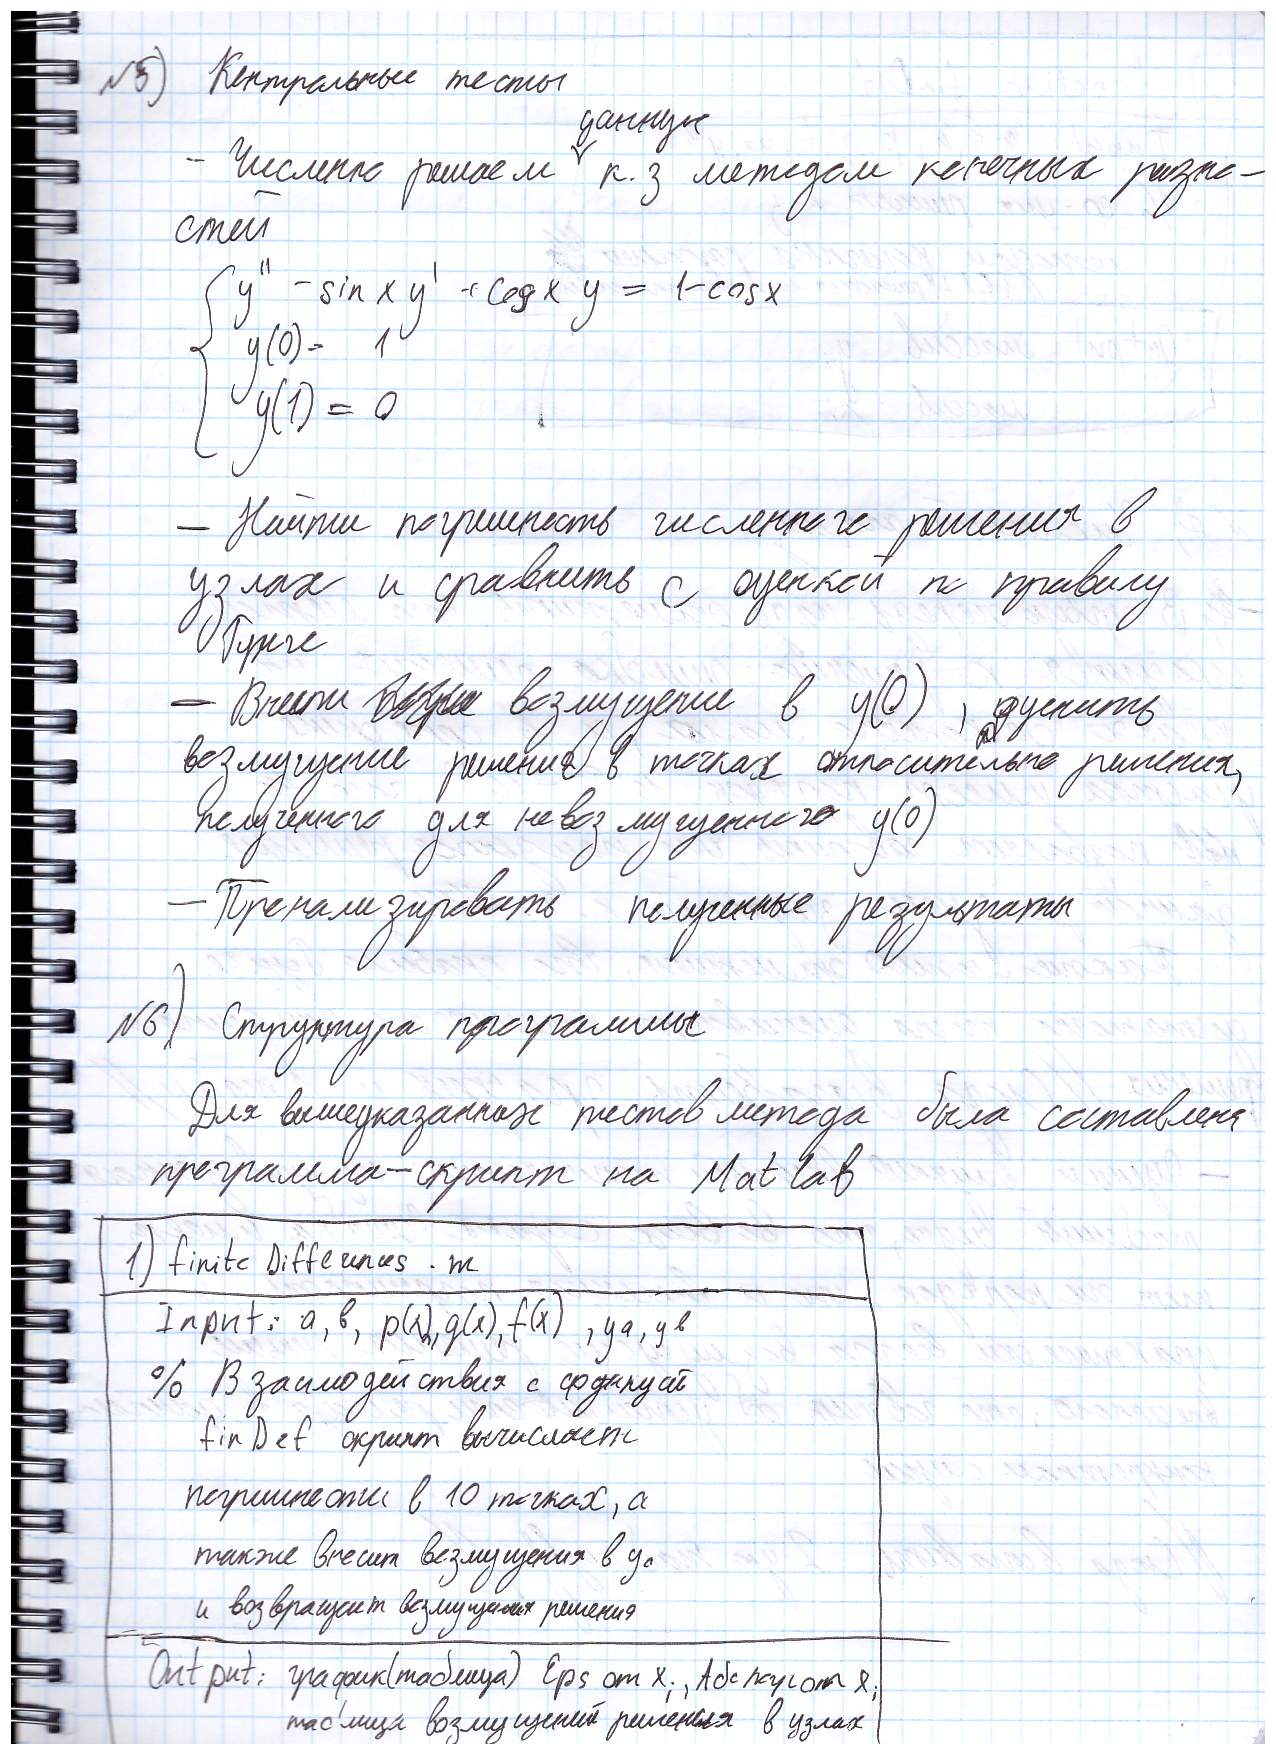 №5) Контрольные тесты
данную
- Численно решаем к.з методом конечных разно-
стей
y'' - sin x y' + cos x y = 1-cosx
y(0) = 1
y(1) = 0
- Найти погрешность численного решения в
узлах и сравнить с оценкой по правилу
Рунге
- Внести возмущение в y(0), оценить
возмущение решения в точках относительно решения,
полученного для невозмущенного y(0)
- Проанализировать полученные результаты
№6) Структура программы
Для вышеуказанных тестов метода была составлена
программа-скрипт на Matlab
1) finite Differences .m
Input: a, b, p(x), g(x), f(x), ya, yb
% Взаимодействия с функцией
finDef скрипт вычисляет
погрешности в 10 точках, а
также вносит возмущения в y0
и возвращает возмущения решения
Output: график(таблица) Eps от xi, от xi
таблица возмущений решения в узлах